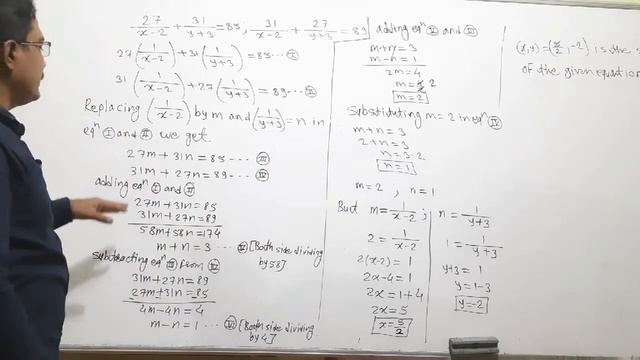 27/(x-2) + 31/(y+3) = 85, 31/(x-2) + 27/(y+3) = 89
27(1/(x-2)) + 31(1/(y+3)) = 85 --- Ⓘ
31(1/(x-2)) + 27(1/(y+3)) = 89 --- Ⅱ
Replacing (1/(x-2)) by m and (1/(y+3)) = n in
eqⁿ Ⓘ and Ⅱ we get
27m + 31n = 85 --- Ⅲ
31m + 27n = 89 --- Ⅳ
adding eqⁿ and
27m + 31n = 85
31m + 27n = 89
58m + 58n = 174
m + n = 3 --- Ⅴ [Both side dividing
by 58]
subtracting eqⁿ Ⅲ from Ⅳ
31m + 27n = 89
27m + 31n = 85
4m - 4n = 4
m - n = 1 --- Ⅵ [Both side dividing
by 4]
adding eqⁿ Ⅴ and Ⅵ
m + n = 3
m - n = 1
2m = 4
m = 2
m = 2
Substituting m = 2 in eqⁿ
m + n = 3
2 + n = 3
n = 3 - 2
n = 1
m = 2 , n = 1
But m = 1/(x-2) ; n = 1/(y+3)
2 = 1/(x-2)
2(x-2) = 1
2x - 4 = 1
2x = 1 + 4
2x = 5
x = 5/2
1 = 1/(y+3)
y + 3 = 1
y = 1 - 3
y = -2
(x, y) = (5/2, -2) is the
of the given equation